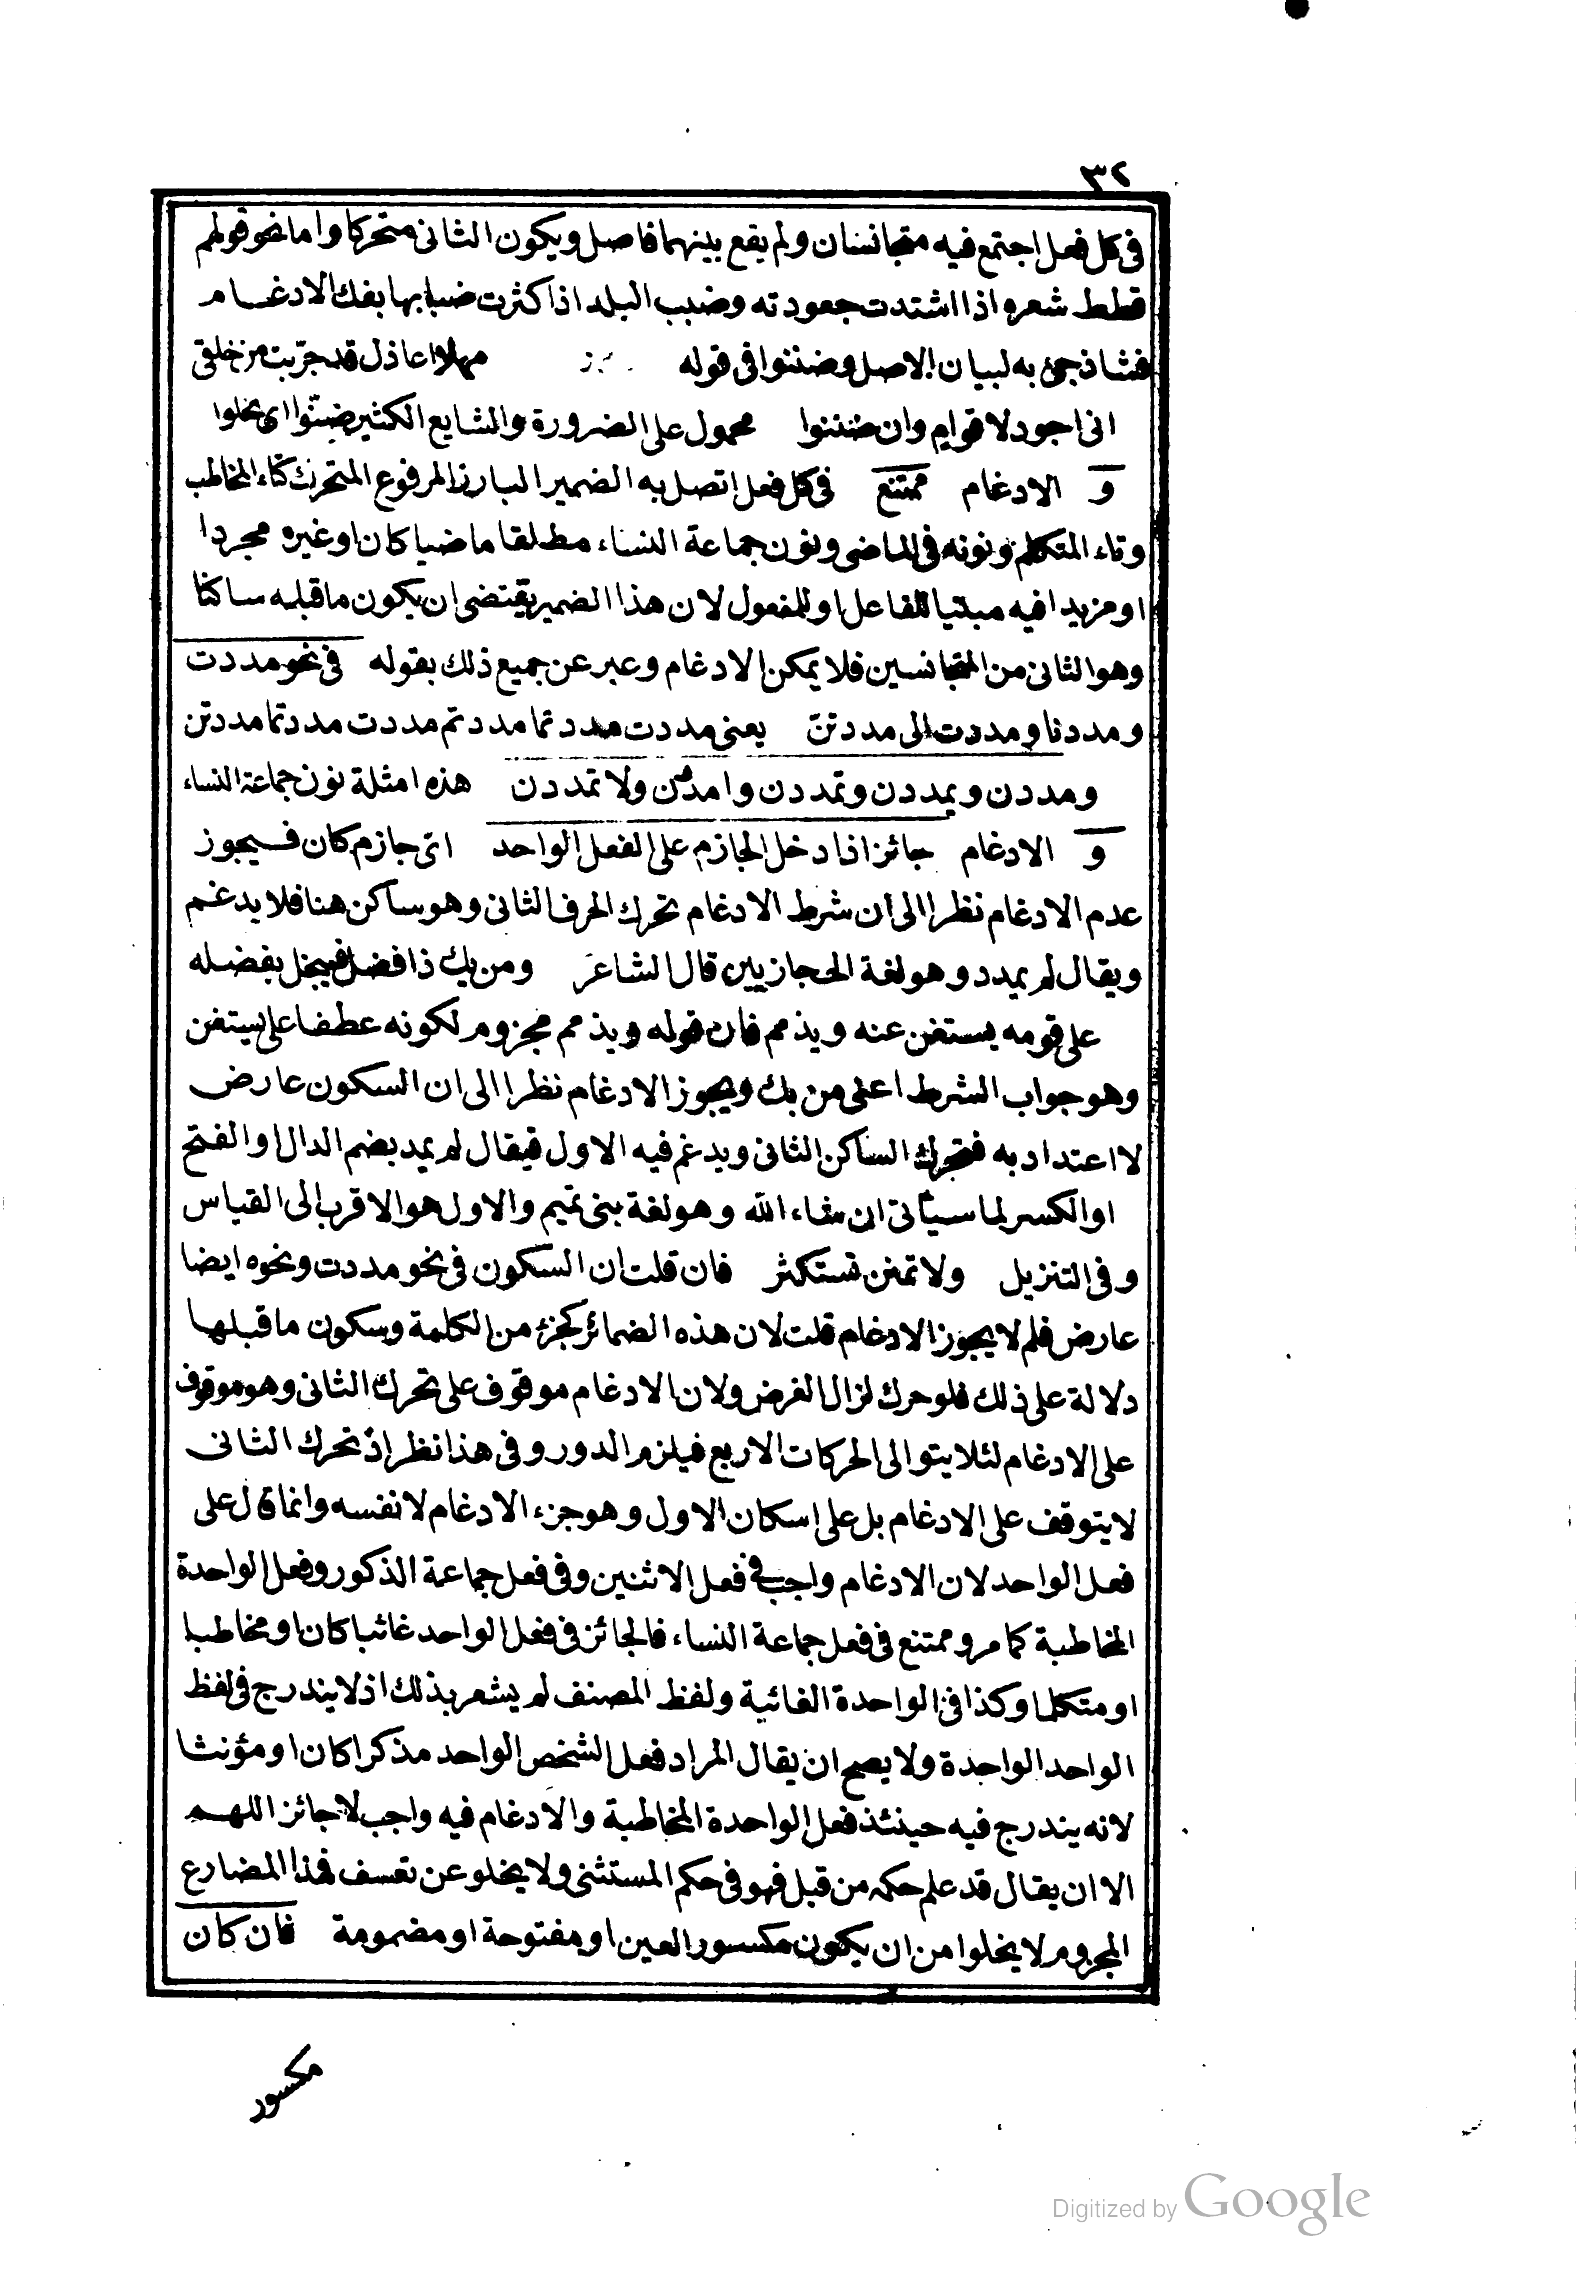 ٣٢
فى كل فعل اجتمع فيه متجانسان ولم يقع بينهما فاصل ويكون الثانى متحركا واما نحو قولهم
قطط شعره اذا اشتدت جعودته وضبب البلد اذا كثرت ضبابها بفك الادغام
فشاذ جىء به لبيان الاصل وضننوا فى قوله مهلا اعاذل قد جرّبت من خلقى
انى اجود لاقوام وان ضننوا محمول على الضرورة والشايع الكثير ضنّوا اى بخلوا
و الادغام ممتنع فى كل فعل اتصل به الضمير البارز المرفوع المتحرك كتاء المخاطب
وتاء المتكلم ونونه فى الماضى ونون جماعة النساء مطلقا ماضيا كان او غيره مجردا
او مزيدا فيه مبنيا للفاعل او للمفعول لان هذا الضمير يقتضى ان يكون ما قبله ساكنا
وهو الثانى من المتجانسين فلا يمكن الادغام وعبر عن جميع ذلك بقوله فى نحو مددت
ومددنا ومددت الى مددتنّ يعنى مددت مددتما مددتم مددت مددتما مددتن
ومددن ويمددن وتمددن وامددن ولا تمددن هذه امثلة نون جماعة النساء
و الادغام جائز اذا دخل الجازم على الفعل الواحد اىّ جازم كان فيجوز
عدم الادغام نظرا الى ان شرط الادغام تحرك الحرف الثانى وهو ساكن هنا فلا يدغم
ويقال لم يمدد وهو لغة الحجازيين قال الشاعر ومن يك ذا فضل فيبخل بفضله
على قومه يستغن عنه ويذمم فان قوله ويذمم مجزوم لكونه عطفا على يستغن
وهو جواب الشرط اعنى من يك ويجوز الادغام نظرا الى ان السكون عارض
لا اعتداد به فتحرك الساكن الثانى ويدغم فيه الاول فيقال لم يمد بضم الدال او الفتح
او الكسر لما سيأتى ان شاء الله وهو لغة بنى تميم والاول هو الاقرب الى القياس
وفى التنزيل ولا تمنن تستكثر فان قلت ان السكون فى نحو مددت ونحوه ايضا
عارض فلم لا يجوز الادغام قلت لان هذه الضمائر كجزء من الكلمة وسكون ما قبلها
دلالة على ذلك فلو حرك لزال الغرض ولان الادغام موقوف على تحرك الثانى وهو موقوف
على الادغام لئلا يتوالى الحركات الاربع فيلزم الدور وفى هذا نظر اذ تحرك الثانى
لا يتوقف على الادغام بل على اسكان الاول وهو جزء الادغام لا نفسه وانما قال على
فعل الواحد لان الادغام واجب فى فعل الاثنين وفى فعل جماعة الذكور وفعل الواحدة
المخاطبة كما مر وممتنع فى فعل جماعة النساء فالجائز فى فعل الواحد غائبا كان او مخاطبا
او متكلما وكذا فى الواحدة الغائبة ولفظ المصنف لم يشعر بذلك اذ لا يندرج فى لفظ
الواحد الواحدة ولا يصح ان يقال المراد فعل الشخص الواحد مذكرا كان او مؤنثا
لانه يندرج فيه حينئذ فعل الواحدة المخاطبة والادغام فيه واجب لا جائز اللهم
الا ان يقال قد علم حكمه من قبل فهو فى حكم المستثنى ولا يخلو عن تعسف فهذا المضارع
المجزوم لا يخلوا من ان يكون مكسور العين او مفتوحة او مضمومة فان كان
مكسور
Digitized by Google